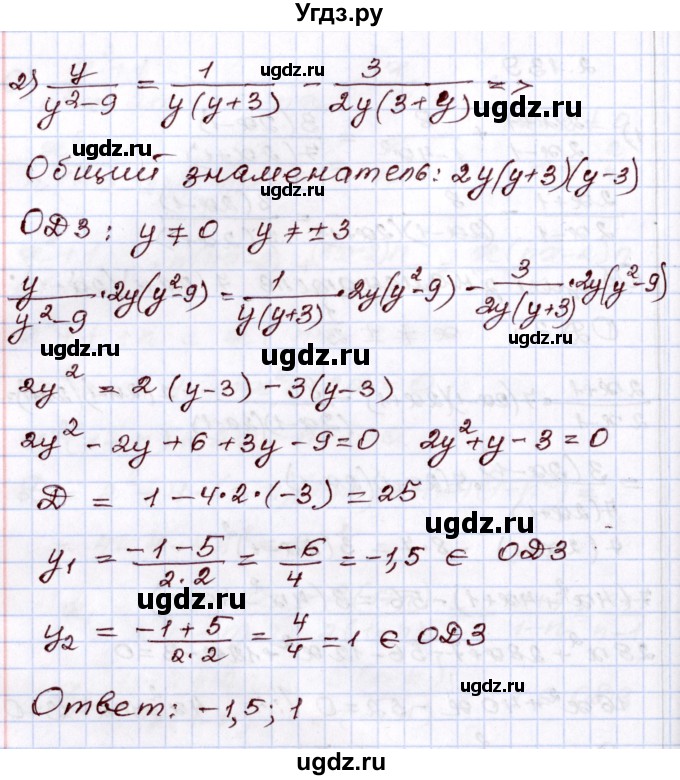 Угдз.ру
2) y/(y²-9) = 1/(y(y+3)) - 3/(2y(3+y)) =>
ugdz.ru
ugdz.ru
ugdz.ru
Общий знаменатель: 2y(y+3)(y-3)
ugdz.ru
ОДЗ: y≠0 y≠±3
y/(y²-9)·2y(y²-9) = 1/(y(y+3))·2y(y²-9) - 3/(2y(y+3))·2y(y²-9)
ugdz.ru
ugdz.ru
ugdz.ru
2y² = 2(y-3) - 3(y-3)
2y² - 2y + 6 + 3y - 9 = 0 2y² + y - 3 = 0
ugdz.ru
D = 1 - 4·2·(-3) = 25
ugdz.ru
y₁ = (-1-5)/(2·2) = -6/4 = -1,5 ∈ ОДЗ
ugdz.ru
y₂ = (-1+5)/(2·2) = 4/4 = 1 ∈ ОДЗ
ugdz.ru
Ответ: -1,5; 1
ugdz.ru
ugdz.ru